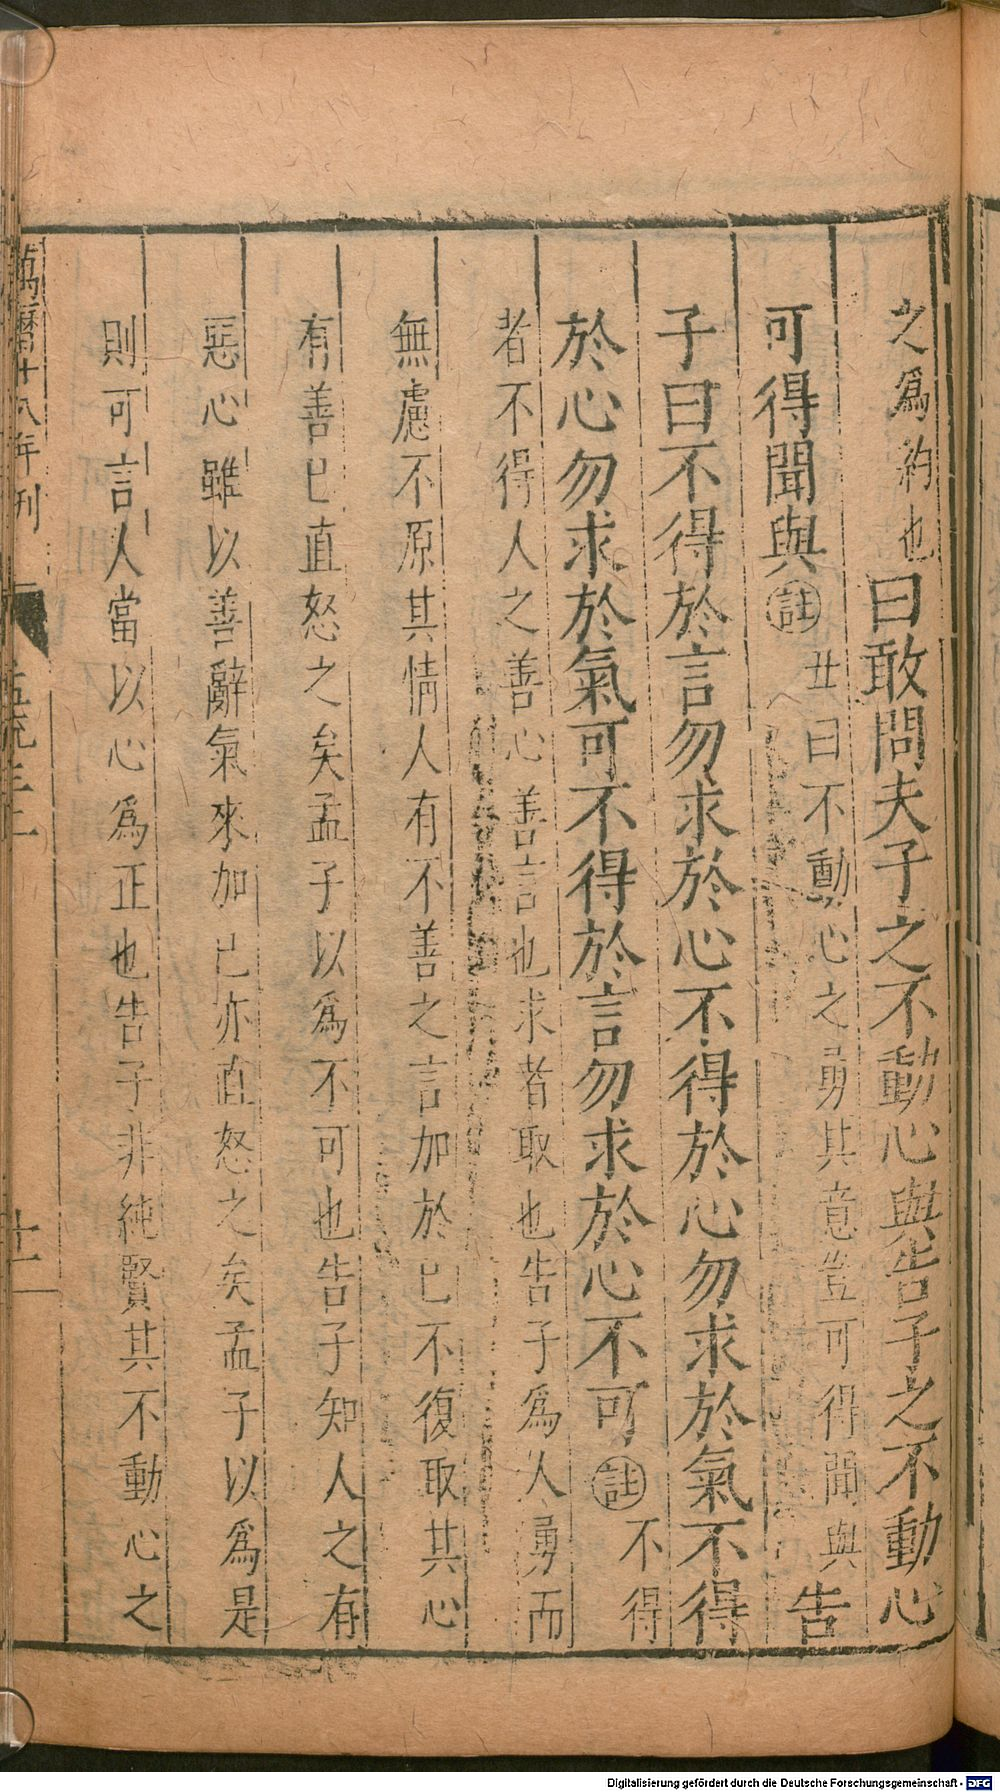 之爲約也曰敢問夫子之不動心與告子之不動心
可得聞與註丑曰不動心之勇其意豈可得聞與告
子曰不得於言勿求於心不得於心勿求於氣不得
於心勿求於氣可不得於言勿求於心不可註不得
者不得人之善心善言也求者取也告子爲人勇而
無慮不原其情人有不善之言加於已不復取其心
有善已直怒之矣孟子以爲不可也告子知人之有
惡心雖以善辭氣來加已亦直怒之矣孟子以爲是
則可言人當以心爲正也告子非純賢其不動心之
萬曆十八年刊
Digitalisierung gefördert durch die Deutsche Forschungsgemeinschaft - DFG